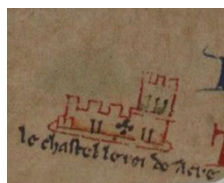 le chastel le roi de acre